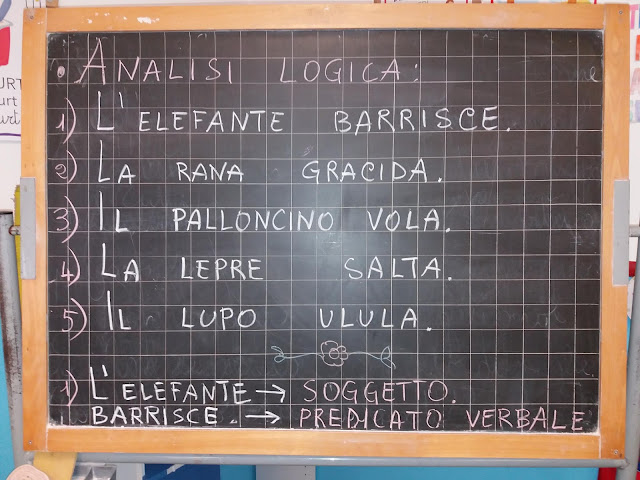 • ANALISI LOGICA:
1) L'ELEFANTE BARRISCE.
2) LA RANA GRACIDA.
3) IL PALLONCINO VOLA.
4) LA LEPRE SALTA.
5) IL LUPO ULULA.
1) L'ELEFANTE → SOGGETTO.
BARRISCE. → PREDICATO VERBALE